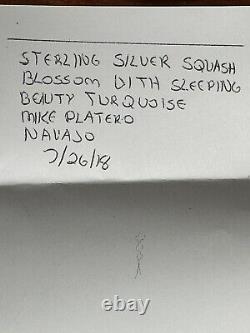 STERLING SILVER SQUASH
BLOSSOM WITH SLEEPING
BEAUTY TURQUOISE
MIKE PLATERO
NAVAJO
7/26/18